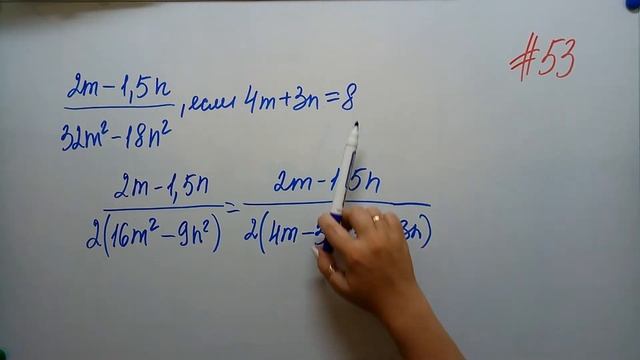 #53
2m - 1,5n
32m² - 18n² , если 4m + 3n = 8
2m - 1,5n = 2m - 1,5n
2(16m² - 9n²) 2(4m - 3n)